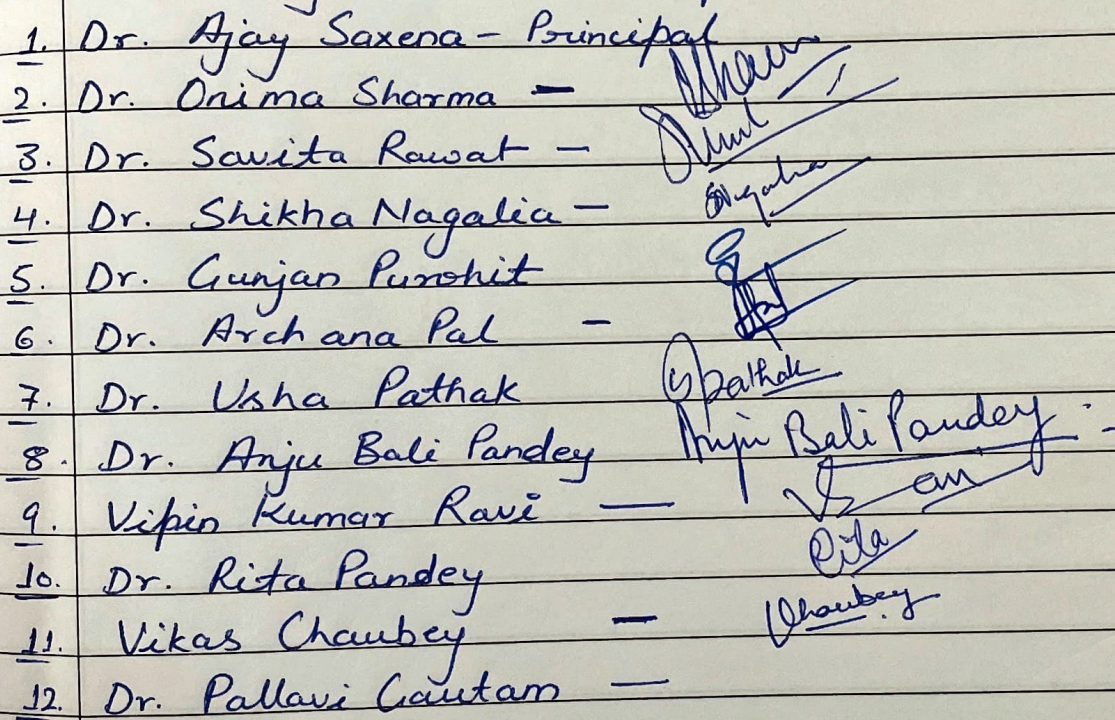 1. Dr. Ajay Saxena - Principal
2. Dr. Onima Sharma -
3. Dr. Savita Rawat -
4. Dr. Shikha Nagalia -
5. Dr. Gunjan Purohit
6. Dr. Archana Pal -
7. Dr. Usha Pathak Upathak
8. Dr. Anju Bali Pandey Anju Bali Pandey
9. Vipin Kumar Ravi -
10. Dr. Rita Pandey Rita
11. Vikas Chaubey - VChaubey
12. Dr. Pallavi Gautam -